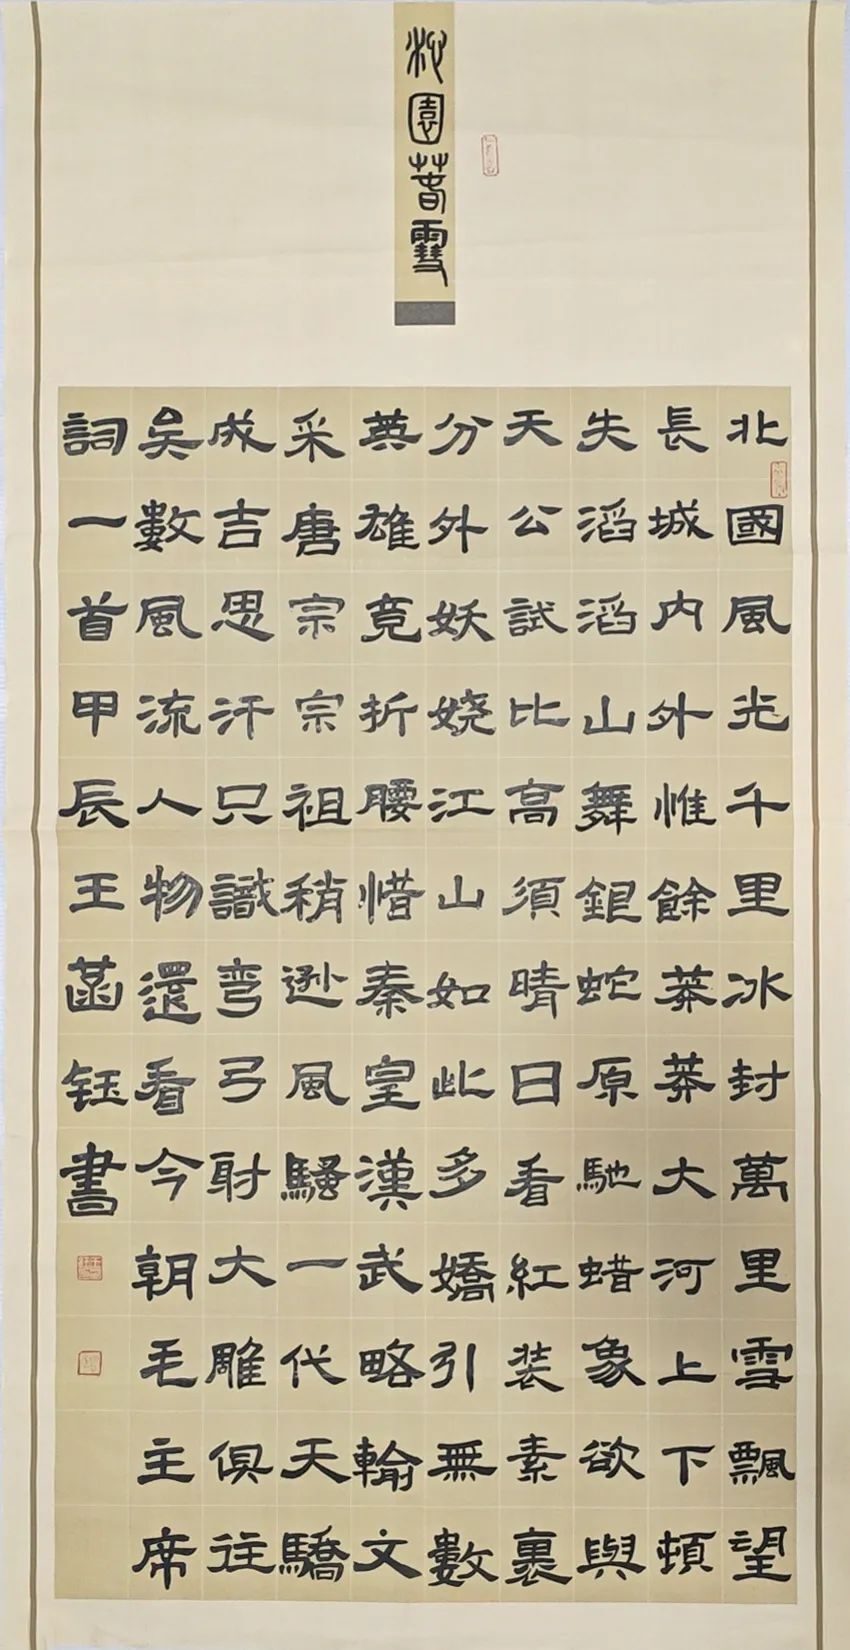 沁園萅雪
北國風光千里冰封萬里雪飄望
長城内外惟餘莽莽大河上下頓
失滔滔山舞銀蛇原馳蜡象欲與
天公試比高須晴日看紅裝素裹
分外妖娆江山如此多嬌引無數
英雄竞折腰惜秦皇漢武略輸文
采唐宗宗祖稍逊風騷一代天驕
成吉思汗只識弯弓射大雕俱往
矣數風流人物還看今朝毛主席
詞一首甲辰王菡鈺書